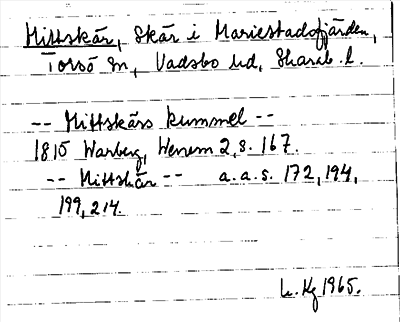 Hittskär, Skär i Mariestadsfjärden,
Torsö sn, Vadsbo hd, Skarab. l.
-- Hittskärs kummel --
1815 Warberg, Wenern 2, s. 167.
-- Hittskär -- a.a.s. 172, 194,
199, 214.
L. Kg 1965.